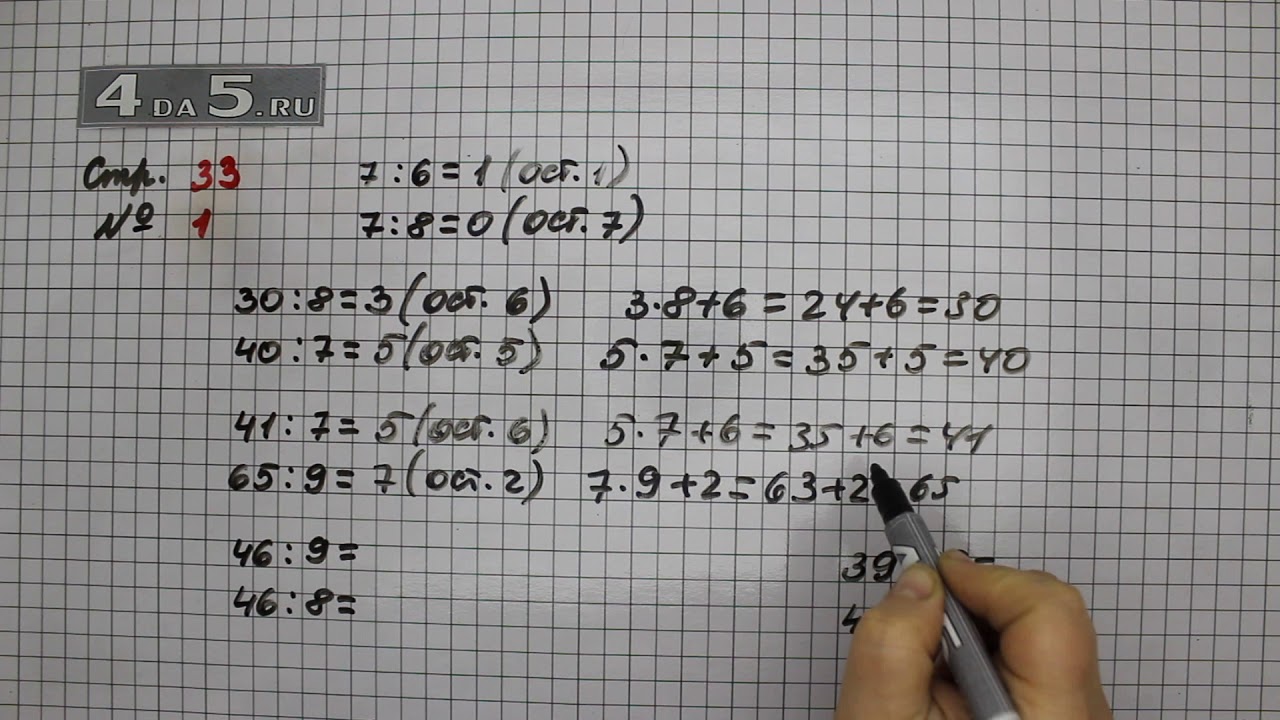 4DA5.RU
Стр. 33
№ 1
7:6=1(ост.1)
7:8=0(ост.7)
30:8=3(ост.6) 3·8+6=24+6=30
40:7=5(ост.5) 5·7+5=35+5=40
41:7=5(ост.6) 5·7+6=35+6=41
65:9=7(ост.2) 7·9+2=63+2 65
46:9= 39
46:8= 4